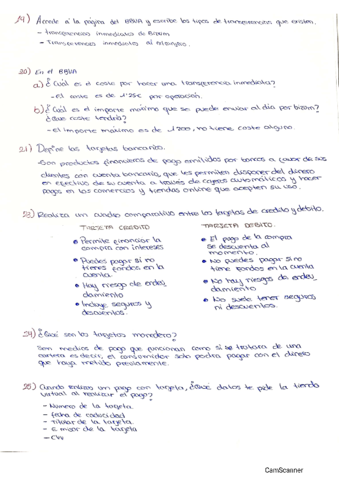 19) Accede a la página del BBVA y escribe los tipos de transferencias que existen.
- Transferencias inmediatas de Bizum
- Transferencias inmediatas al
20) En el BBVA
a) ¿Cuál es el coste por hacer una transferencia inmediata?
- El coste es de 1'25€ por operación.
b) ¿Cuál es el importe máximo que se puede enviar al día por bizum?
¿Qué coste tendría?
- El importe máximo es de 1200, no tiene coste alguno
21) Define las tarjetas bancarias.
Son productos financieros de pago emitidos por bancos a favor de sus
clientes con cuenta bancaria, que les permiten disponer del dinero
en efectivo de su cuenta a través de cajeros automáticos y hacer
pagos en los comercios y tiendas online que acepten su uso.
Realiza un cuadro comparativo entre las tarjetas de credito y debito.
TARJETA CREDITO
TARJETA DEBITO
• Permite financiar la
compra con intereses
• Puedes pagar si no
tienes fondos en la
cuenta.
• Hay riesgo de endeu
damiento
• Incluye seguros y
descuentos.
• El pago de la compra
se descuenta al
momento.
• No puedes pagar si no
tiene fondos en la cuenta
• No hay riesgo de endeu
damiento
• No suele tener seguros
ni descuentos.
24) ¿Qué son las tarjetas monedero?
Son medios de pago que funcionan como si se tratara de una
cartera es decir, el consumidor solo podra pagar con el dinero
que haya metido previamente.
25) Cuando realizas un pago con tarjeta, ¿Qué datos te pide la tienda
virtual al realizar el pago?
- Número de la tarjeta
- fecha de caducidad
- Titular de la tarjeta.
- de la tarjeta
CamScanner